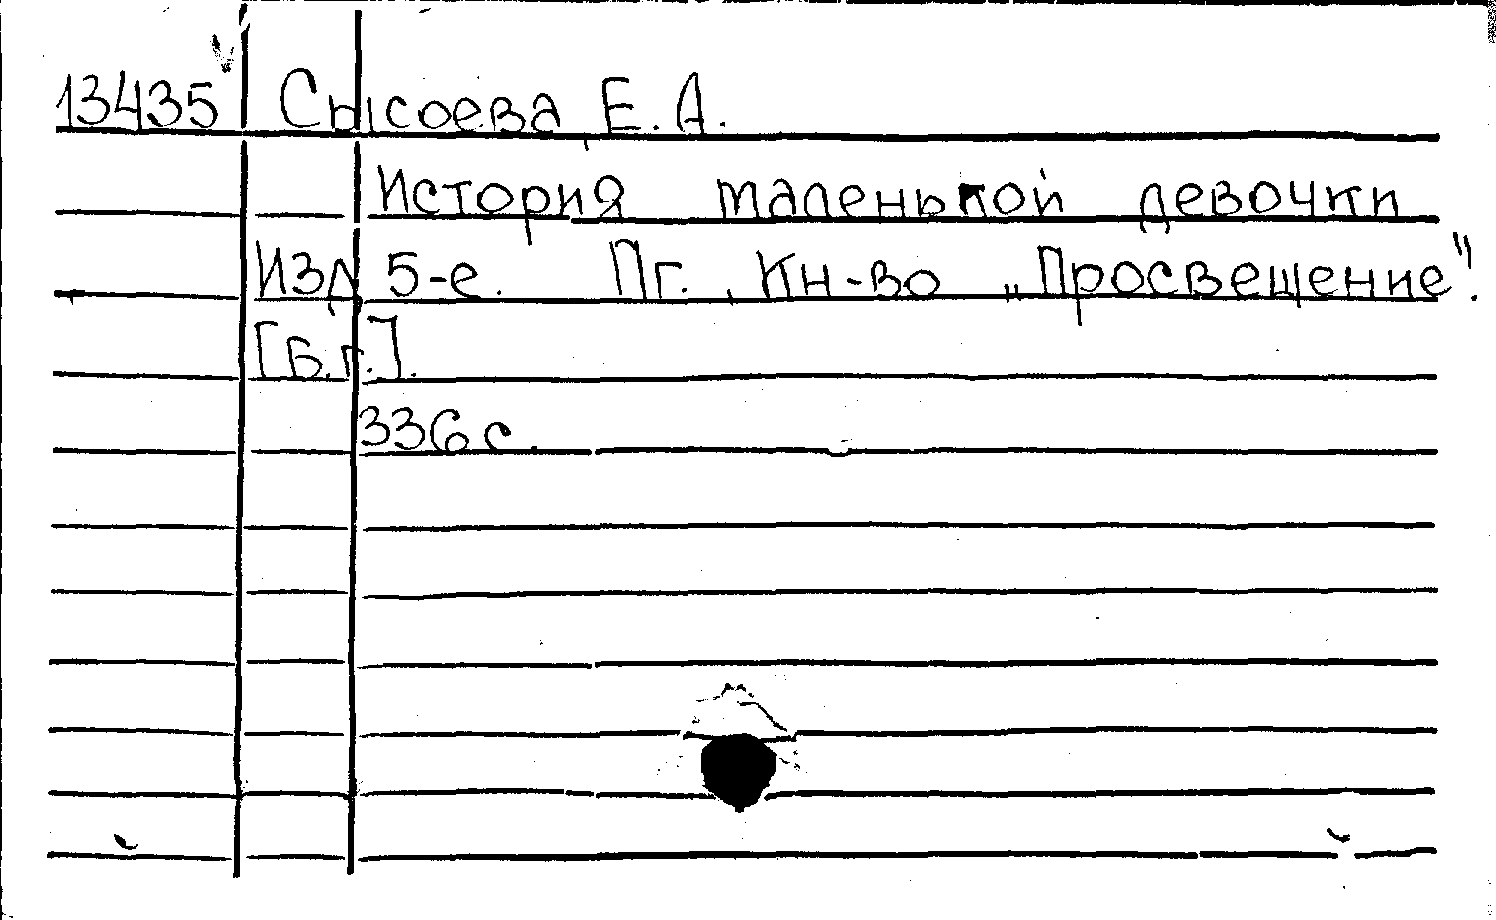 13435 Сысоева Е. А.
История маленькой девочки
Изд 5-е. Пг., Кн-во „Просвещение".
[Б.г.].
336 с.